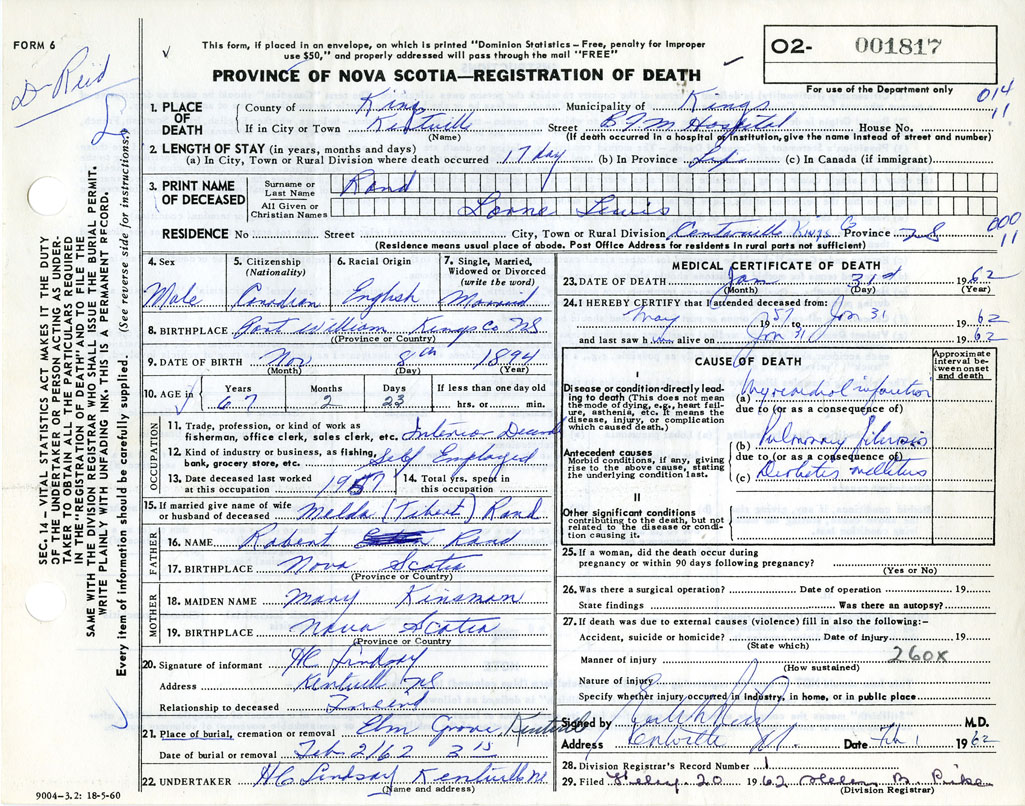 FORM 6
D Reid
This form, if placed in an envelope, on which is printed "Dominion Statistics – Free, penalty for improper
use $50," and properly addressed will pass through the mail "FREE"
PROVINCE OF NOVA SCOTIA—REGISTRATION OF DEATH
O2- 001817
For use of the Department only
014
11
1. PLACE OF DEATH
County of Kings Municipality of Kings
If in City or Town Kentville Street B.F.M Hospital House No.
(Name) (If death occurred in a hospital or institution, give the name instead of street and number)
2. LENGTH OF STAY (in years, months and days)
(a) In City, Town or Rural Division where death occurred 17 day (b) In Province Life (c) In Canada (if immigrant)
3. PRINT NAME OF DECEASED
Surname or Last Name Rand
All Given or Christian Names Lorne Lewis
RESIDENCE No Street City, Town or Rural Division Centerville Kings Co Province N S
000
11
(Residence means usual place of abode. Post Office Address for residents in rural parts not sufficient)
4. Sex Male
5. Citizenship (Nationality) Canadian
6. Racial Origin English
7. Single, Married, Widowed or Divorced (write the word) Married
8. BIRTHPLACE Port William Kings Co NS
(Province or Country)
9. DATE OF BIRTH Nov 8th 1894
(Month) (Day) (Year)
10. AGE in Years 67 Months 2 Days 23 If less than one day old hrs. or min.
OCCUPATION
11. Trade, profession, or kind of work as
fisherman, office clerk, sales clerk, etc. Interior Decord
12. Kind of industry or business, as fishing,
bank, grocery store, etc. Self Employed
13. Date deceased last worked at this occupation 1957
14. Total yrs. spent in this occupation
15. If married give name of wife or husband of deceased Melda (Tibert) Rand
FATHER
16. NAME Robert Rand
17. BIRTHPLACE Nova Scotia
(Province or Country)
MOTHER
18. MAIDEN NAME Mary Kinsman
19. BIRTHPLACE Nova Scotia
(Province or Country)
20. Signature of informant HC Lindsay
Address Kentville NS
Relationship to deceased Friend
21. Place of burial, cremation or removal Elm Grove Kentville
Date of burial or removal Feb 2/62
22. UNDERTAKER H.C. Lindsay Kentville NS
(Name and address)
9004–3.2: 18-5-60
MEDICAL CERTIFICATE OF DEATH
23. DATE OF DEATH Jan 31st 1962
(Month) (Day) (Year)
24. I HEREBY CERTIFY that I attended deceased from:
May 1957 to Jan 31 1962
and last saw him alive on Jan 31 1962
CAUSE OF DEATH
Approximate interval between onset and death
I
Disease or condition directly leading to death (This does not mean the mode of dying, e.g., heart failure, asthenia, etc. It means the disease, injury, or complication which caused death.)
(a) Myocardial infarction
due to (or as a consequence of)
Antecedent causes
Morbid conditions, if any, giving rise to the above cause, stating the underlying condition last.
(b) Pulmonary fibrosis
due to (or as a consequence of)
(c) Diabetes mellitus
II
Other significant conditions
contributing to the death, but not related to the disease or condition causing it.
25. If a woman, did the death occur during
pregnancy or within 90 days following pregnancy?
(Yes or No)
26. Was there a surgical operation? Date of operation 19
State findings Was there an autopsy?
27. If death was due to external causes (violence) fill in also the following:–
Accident, suicide or homicide? Date of injury 19
(State which)
Manner of injury 260X
(How sustained)
Nature of injury
Specify whether injury occurred in industry, in home, or in public place
Signed by M.D.
Address Date Feb 1 1962
28. Division Registrar's Record Number 1
29. Filed Feby 20 1962 Helen B. Pike
(Division Registrar)
SEC. 14 – VITAL STATISTICS ACT MAKES IT THE DUTY
OF THE UNDERTAKER OR PERSON ACTING AS UNDER-
TAKER TO OBTAIN ALL THE PARTICULARS REQUIRED
IN THE "REGISTRATION OF DEATH" AND TO FILE THE
SAME WITH THE DIVISION REGISTRAR WHO SHALL ISSUE THE BURIAL PERMIT.
WRITE PLAINLY WITH UNFADING INK. THIS IS A PERMANENT RECORD.
Every item of information should be carefully supplied. (See reverse side for instructions.)